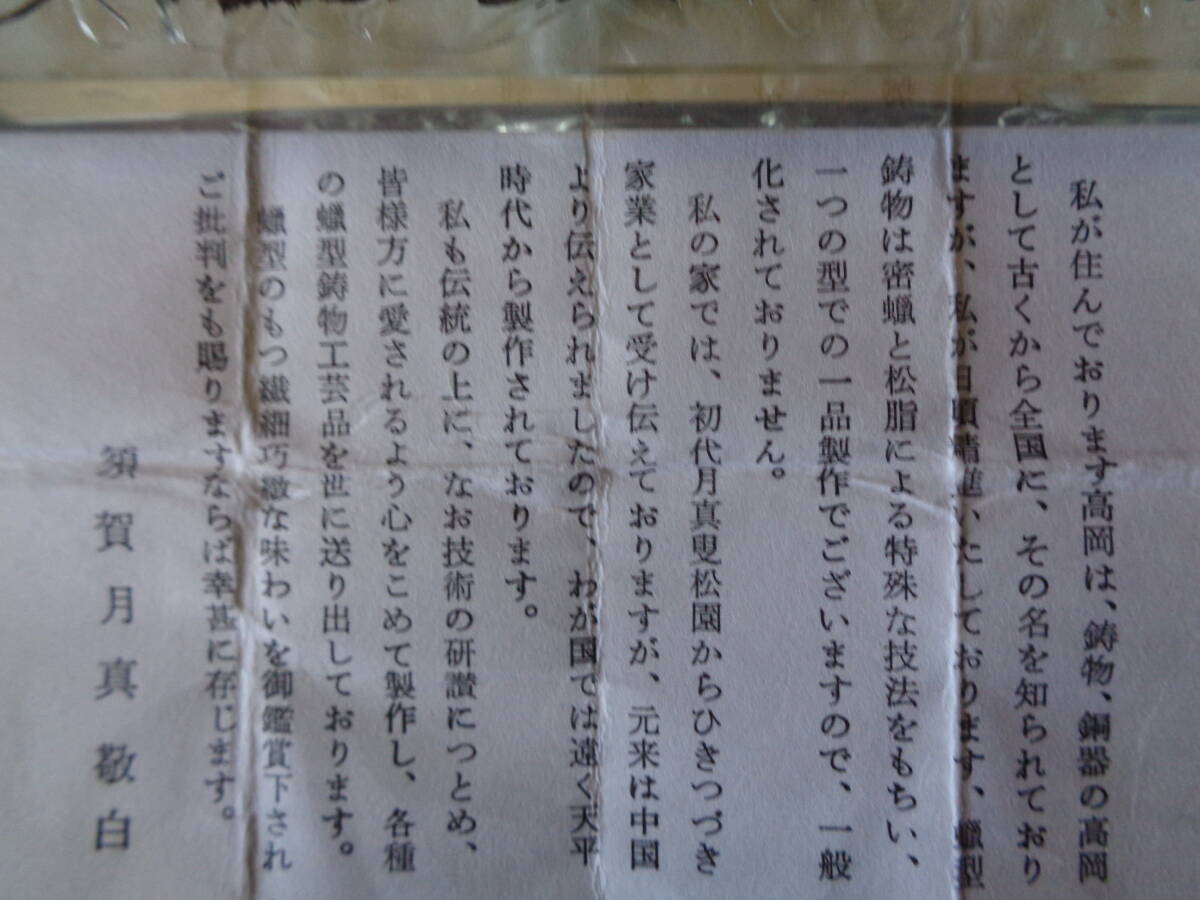 私が住んでおります高岡は、鋳物、銅器の高岡
として古くから全国に、その名を知られており
ますが、私が日頃精進いたしております、蠟型
鋳物は密蠟と松脂による特殊な技法をもちい、
一つの型での一品製作でございますので、一般
化されておりません。
私の家では、初代月真叟松園からひきつづき
家業として受け伝えておりますが、元来は中国
より伝えられましたので、わが国では遠く天平
時代から製作されております。
私も伝統の上に、なお技術の研讃につとめ、
皆様方に愛されるよう心をこめて製作し、各種
の蠟型鋳物工芸品を世に送り出しております。
蠟型のもつ繊細巧緻な味わいを御鑑賞下され
ご批判をも賜りますならば幸甚に存じます。
須賀月真敬白